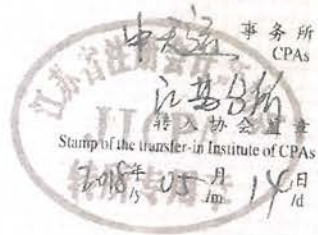 中天运 事务所
CPAs
江苏分所
江苏省注册会计师
JICPA
转入协会盖章
Stamp of the transfer-in Institute of CPAs
转所专用章
2018年 05月 14日
/y /m /d